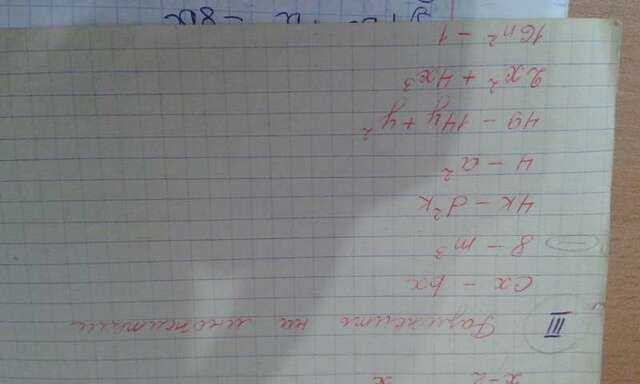 x-2 x
III Разложить на множители
cx - bx
8 - m³
4k - d²k
4 - a²
49 - 14y + y²
2x² + 4x³
16n² - 1